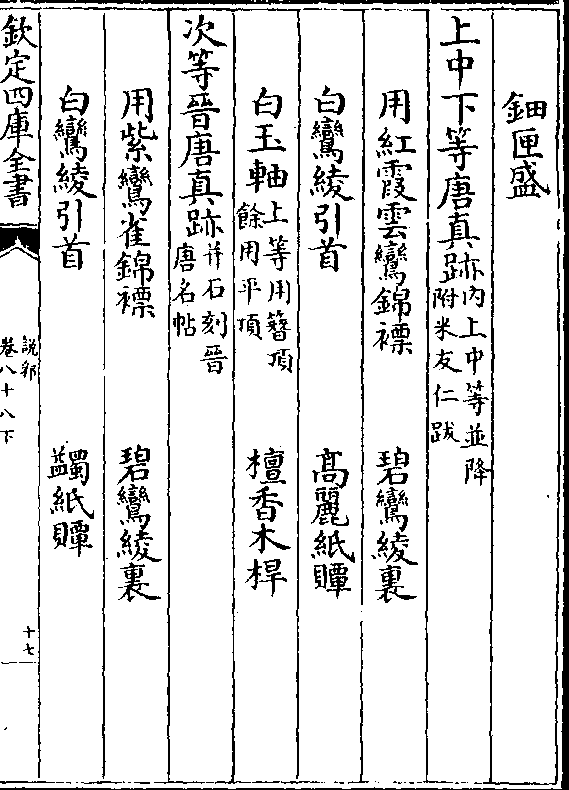 鈿匣盛
上中下等唐真跡内上中等並降附米友仁跋
用紅霞雲鸞錦褾　碧鸞綾裏
白鸞綾引首　高麗紙贉
白玉軸上等用簪頂餘用平頂　檀香木桿
次等晉唐真跡并石刻晉唐名帖
用紫鸞雀錦褾　碧鸞綾裏
白鸞綾引首　蠲紙贉
欽定四庫全書
說郛
卷八十八下
十七